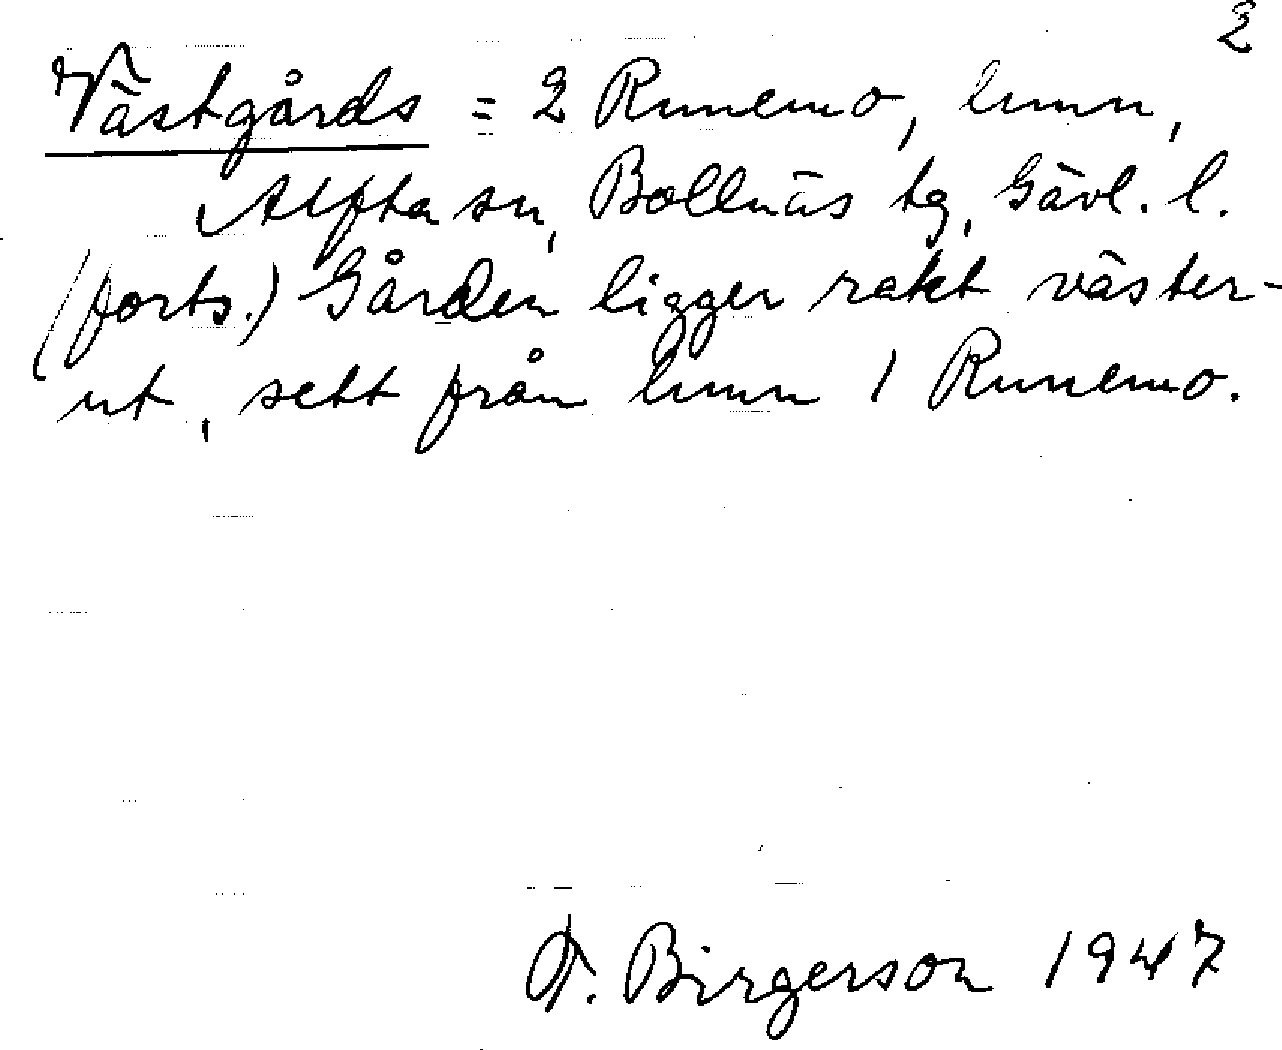 2
Västgårds = 2 Runemo, hmn,
Alfta sn, Bollnäs tg, Gävl. l.
(forts.) Gården ligger rakt väster-
ut, sett från hmn 1 Runemo.
F. Birgerson 1947